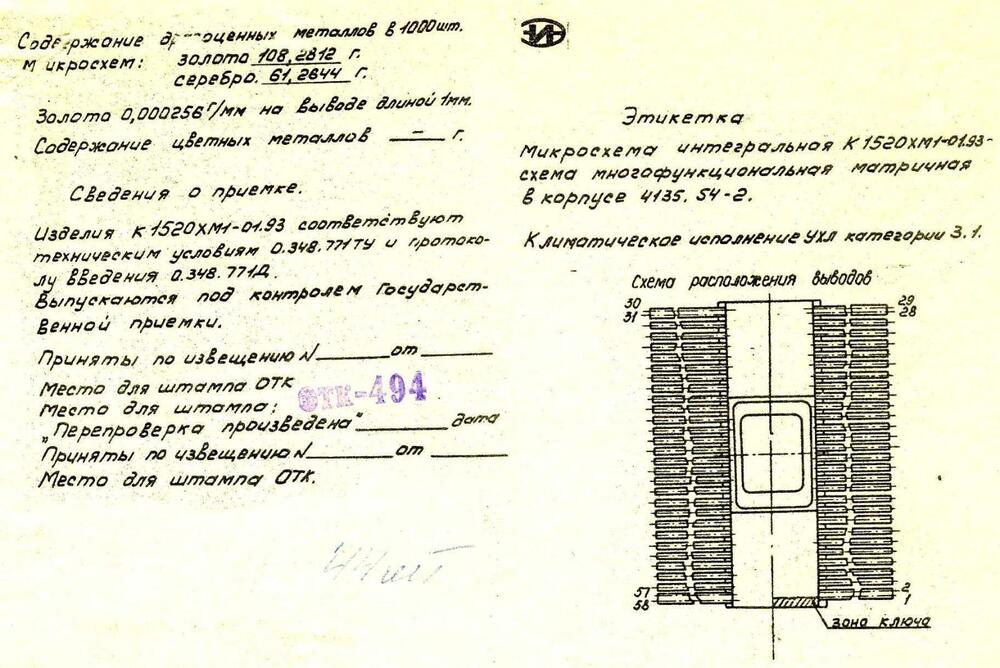 Содержание драгоценных металлов в 1000 шт.
микросхем: золото 108,2812 г.
серебро. 61,2844 г.
Золото 0,000256 г/мм на выводе длиной 1мм.
Содержание цветных металлов — г.
Сведения о приемке.
Изделия К 1520ХМ1-01.93 соответствуют
техническим условиям 0.348.771ТУ и протоко-
лу введения 0.348.771Д.
Выпускаются под контролем Государст-
венной приемки.
Приняты по извещению N ______ от ______
Место для штампа ОТК
ОТК-494
Место для штампа:
„Перепроверка произведена" ______ дата
Приняты по извещению N ______ от ______
Место для штампа ОТК.
Этикетка
Микросхема интегральная К 1520ХМ1-01.93-
схема многофункциональная матричная
в корпусе 4135.54-2.
Климатическое исполнение УХЛ категории 3.1.
Схема расположения выводов
30 29
31 28
57 2
58 1
зона ключа